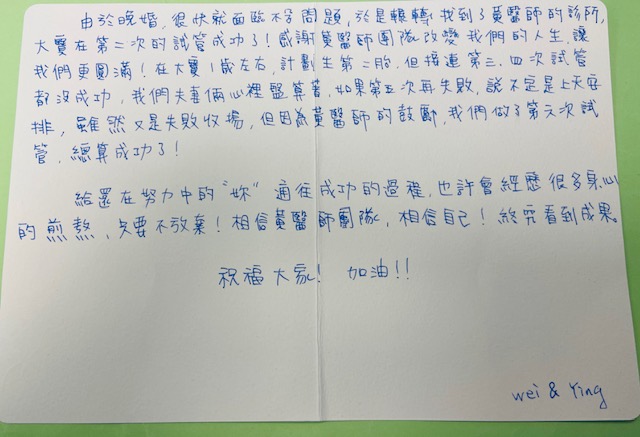 由於晚婚,很快就面臨不孕問題,於是輾轉找到了黃醫師的診所,
大寶在第二次的試管成功了!感謝黃醫師團隊改變我們的人生,讓
我們更圓滿!在大寶1歲左右,計劃生第二胎,但接連第三、四次試管
都沒成功,我們夫妻倆心裡盤算著,如果第五次再失敗,說不定是上天安
排,雖然又是失敗收場,但因為黃醫師的鼓勵,我們做了第六次試
管,總算成功了!
給還在努力中的"妳"通往成功的過程,也許會經歷很多身心
的煎熬,只要不放棄!相信黃醫師團隊,相信自己!終究看到成果。
祝福大家! 加油!!
wei & Ying